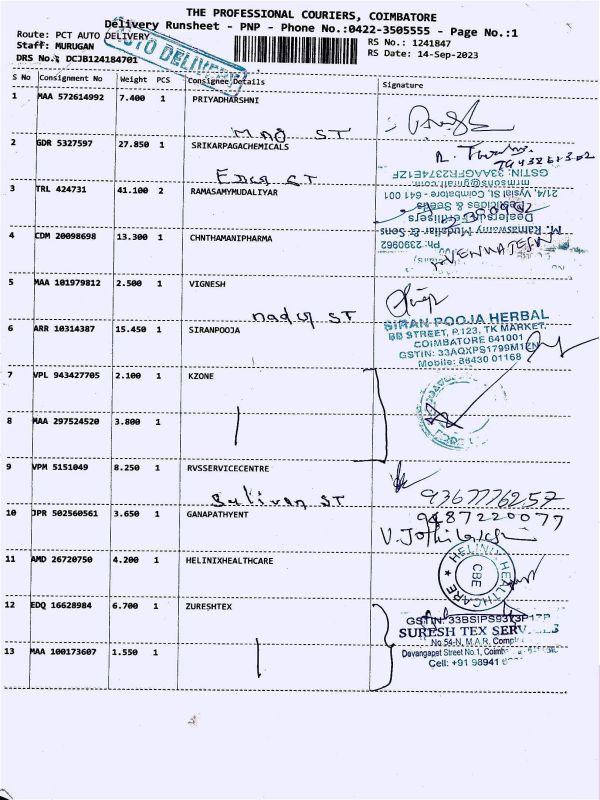 THE PROFESSIONAL COURIERS, COIMBATORE
Delivery Runsheet - PNP - Phone No.:0422-3505555 - Page No.:1
Route: PCT AUTO DELIVERY
RS No.: 1241847
Staff: MURUGAN
RS Date: 14-Sep-2023
DRS No.: DCJB124184701
AUTO DELIVERY
S No Consignment No Weight PCS Consignee Details Signature
1 MAA 572614992 7.400 1 PRIYADHARSHNI
ST
2 GDR 5327597 27.850 1 SRIKARPAGACHEMICALS
ST
3 TRL 424731 41.100 2 RAMASAMYMUDALIYAR
M. Ramaswamy Mudaliar & Sons
Dealers in Fertilisers
Pesticides & Seeds
21/4, Vysial St, Coimbatore - 641 001
mrmsons@gmail.com
GSTIN: 33AAGFR2374E1ZF
Ph: 2390962
4 CDM 20098698 13.300 1 CHNTHAMANIPHARMA
VENKATESH
5 MAA 101979812 2.500 1 VIGNESH
ST
6 ARR 10314387 15.450 1 SIRANPOOJA
SIRAN POOJA HERBAL
BB STREET, P.123, TK MARKET,
COIMBATORE 641001
GSTIN: 33AQXPS1799M1ZN
Mobile: 86430 01168
7 VPL 943427705 2.100 1 KZONE
8 MAA 297524520 3.800 1
9 VPM 5151049 8.250 1 RVSSERVICECENTRE
9367776257
Sulivan ST
10 JPR 502560561 3.650 1 GANAPATHYENT
9487220077
11 AMD 26720750 4.200 1 HELINIXHEALTHCARE
HELINIX HEALTHCARE
CBE
12 EDQ 16628984 6.700 1 ZURESHTEX
SURESH TEX
No.54-N, M.A.R.
Devangapet Street No.1,
Cell: +91 98941
13 MAA 100173607 1.550 1